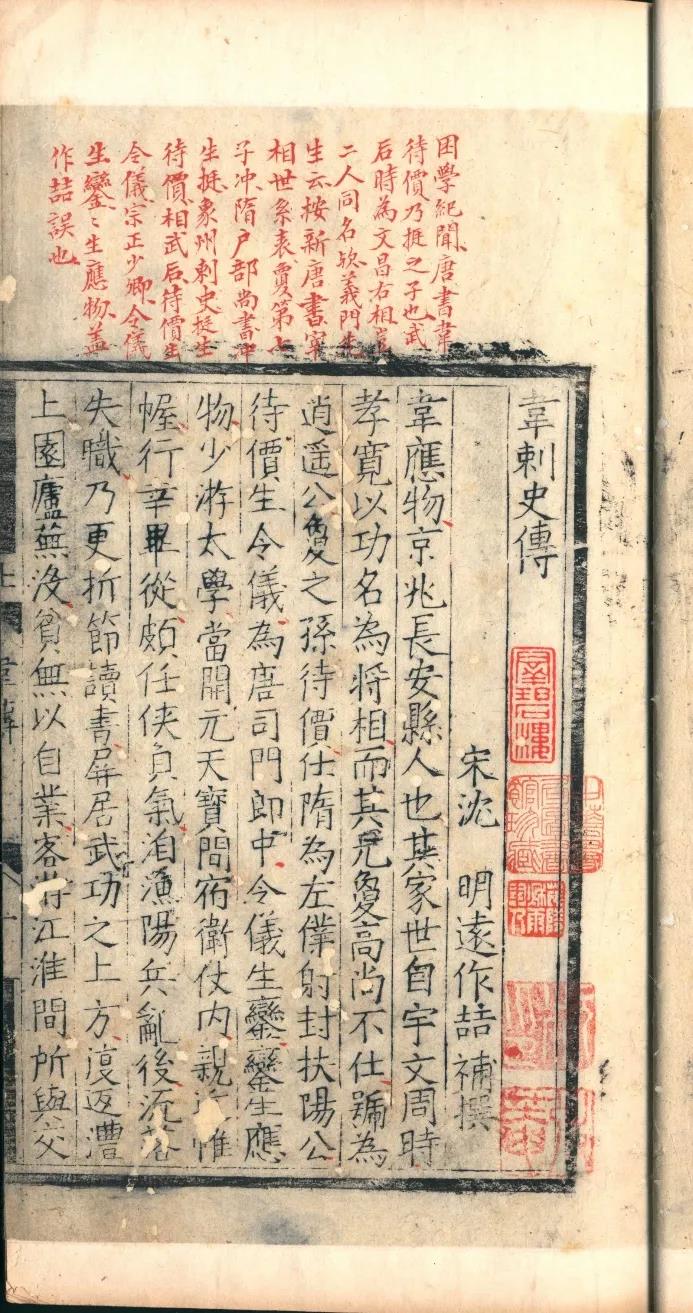 困學紀聞唐書韋
待價乃挺之子也武
后時為文昌右相豈
二人同名欤義門先
生云按新唐書宰
相世系表夐第七
子冲隋户部尚書冲
生挺象州刺史挺生
待價相武后待價生
令儀宗正少卿令儀
生鑾鑾生應物蓋
作喆誤也
韋刺史傳
宋沈 明遠作喆 補撰
韋應物京兆長安縣人也其家世自宇文周時
孝寛以功名為将相而其兄夐高尚不仕號為
逍遥公夐之孫待價仕隋為左僕射封扶陽公
待價生令儀為唐司門郎中令儀生鑾鑾生應
物少游太學當開元天寶間宿衛仗内親近帷
幄行幸畢從頗任俠負氣洎漁陽兵亂後流落
失職乃更折節讀書屏居武功之上方復返澧
上園廬蕪没貧無以自業客游江淮間所與交